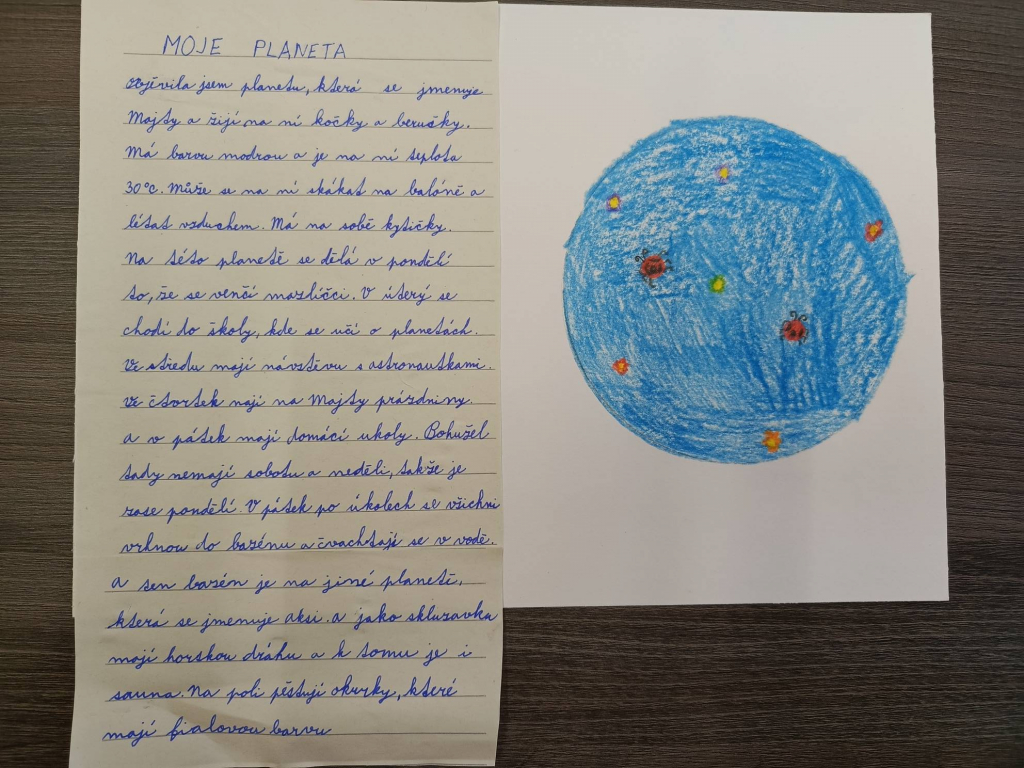 MOJE PLANETA
objěvila jsem planetu, která se jmenuje
Majty a žijí na ní kočky a berušky.
Má barvu modrou a je na ní teplota
30°c. Může se na ní skákat na balóně a
létat vzduchem. Má na sobě kytičky.
Na této planetě se dělá v pondělí
to, že se venčí mazlíčci. V úterý se
chodí do školy, kde se učí o planetách.
Ve středu mají návštěvu s astronautkami.
Ve čtvrtek mají na Majty prázdniny.
a v pátek mají domácí ukoly. Bohužel
tady nemají sobotu a neděli, takže je
zase pondělí. V pátek po úkolech se všichni
vrhnou do bazénu a čvachtají se v vodě.
A ten bazén je na jiné planetě,
která se jmenuje aksi. a jako skluzavku
mají horskou dráhu a k tomu je i
sauna. Na poli pěstují okurky, které
mají fialovou barvu